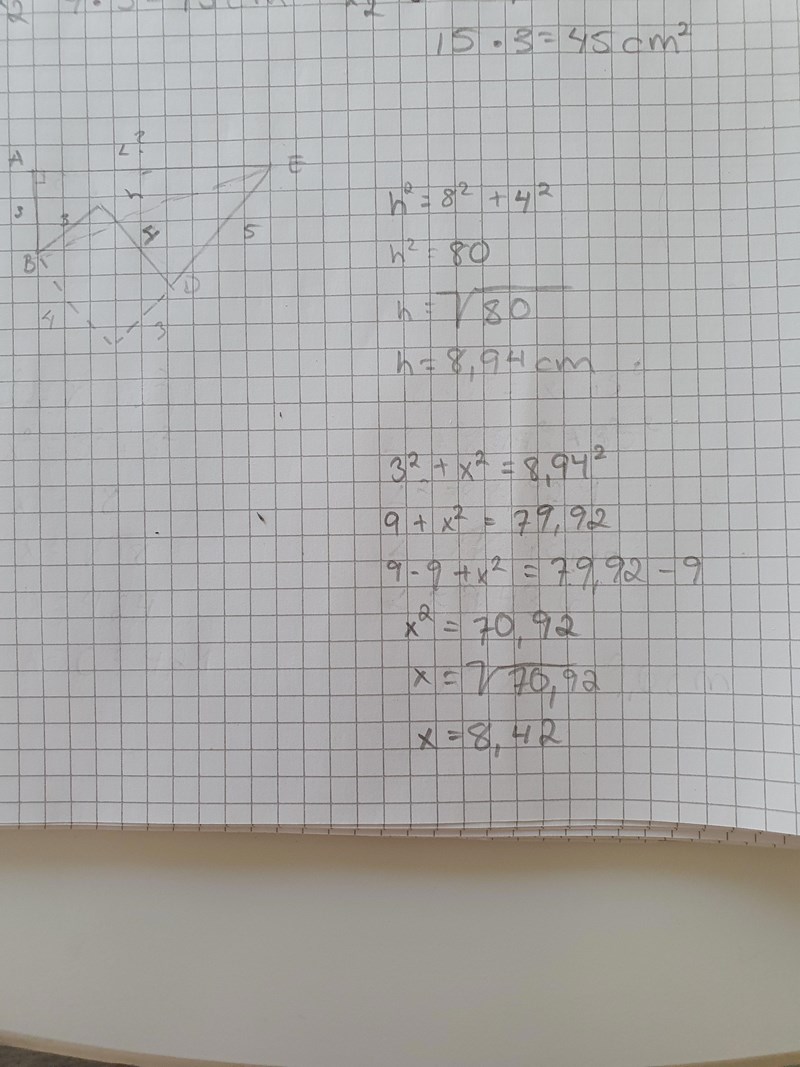 15 · 3 = 45 cm²
A
L?
E
h
3
3
4
5
B
D
4
3
h² = 8² + 4²
h² = 80
h = √80
h = 8,94 cm
3² + x² = 8,94²
9 + x² = 79,92
9 - 9 + x² = 79,92 - 9
x² = 70,92
x = √70,92
x = 8,42